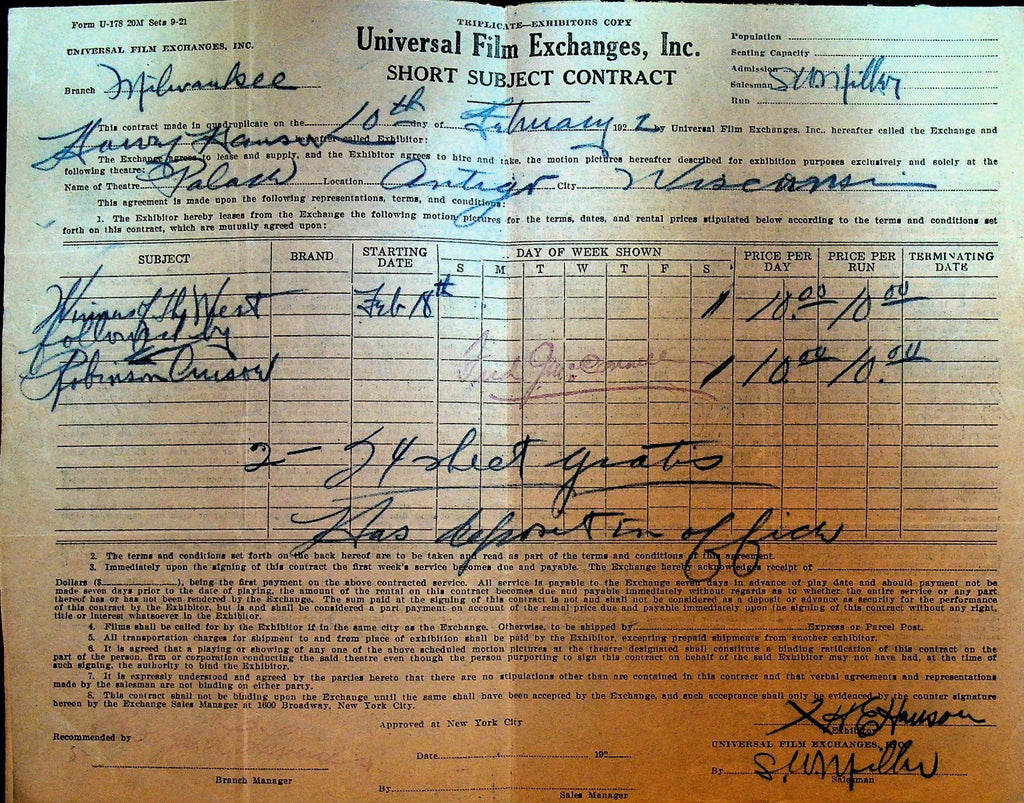 Form U-178 20M Sets 9-21
TRIPLICATE—EXHIBITORS COPY
UNIVERSAL FILM EXCHANGES, INC.
Universal Film Exchanges, Inc.
SHORT SUBJECT CONTRACT
Branch Milwaukee
Population
Seating Capacity
Admission
Salesman S.W. Miller
Run
This contract made in quadruplicate on the 10th day of February 192 2 by Universal Film Exchanges, Inc., hereafter called the Exchange and
Harry Hanson hereafter called Exhibitor:
The Exchange agrees to lease and supply, and the Exhibitor agrees to hire and take, the motion pictures hereafter described for exhibition purposes exclusively and solely at the
following theatre:
Name of Theatre Palace Location Antigo City Wisconsin
This agreement is made upon the following representations, terms, and conditions:
1. The Exhibitor hereby leases from the Exchange the following motion pictures for the terms, dates, and rental prices stipulated below according to the terms and conditions set
forth on this contract, which are mutually agreed upon:
SUBJECT BRAND STARTING DATE DAY OF WEEK SHOWN PRICE PER DAY PRICE PER RUN TERMINATING DATE
S M T W T F S
Winners of The West Feb 18th 1 10.00 10.00
followed by
Robinson Crusoe 1 10.00 10.00
2 - 24 sheet gratis
Has deposit in office
2. The terms and conditions set forth on the back hereof are to be taken and read as part of the terms and conditions of this agreement.
3. Immediately upon the signing of this contract the first week's service becomes due and payable. The Exchange hereby acknowledges receipt of
Dollars ($ ), being the first payment on the above contracted service. All service is payable to the Exchange seven days in advance of play date and should payment not be
made seven days prior to the date of playing, the amount of the rental on this contract becomes due and payable immediately without regards as to whether the entire service or any part
thereof has or has not been rendered by the Exchange. The sum paid at the signing of this contract is not and shall not be considered as a deposit or advance as security for the performance
of this contract by the Exhibitor, but is and shall be considered a part payment on account of the rental price due and payable immediately upon the signing of this contract without any right,
title or interest whatsoever in the Exhibitor.
4. Films shall be called for by the Exhibitor if in the same city as the Exchange. Otherwise, to be shipped by Express or Parcel Post.
5. All transportation charges for shipment to and from place of exhibition shall be paid by the Exhibitor, excepting prepaid shipments from another exhibitor.
6. It is agreed that a playing or showing of any one of the above scheduled motion pictures at the theatre designated shall constitute a binding ratification of this contract on the
part of the person, firm or corporation conducting the said theatre even though the person purporting to sign this contract on behalf of the said Exhibitor may not have had, at the time of
such signing, the authority to bind the Exhibitor.
7. It is expressly understood and agreed by the parties hereto that there are no stipulations other than are contained in this contract and that verbal agreements and representations
made by the salesman are not binding on either party.
8. This contract shall not be binding upon the Exchange until the same shall have been accepted by the Exchange, and such acceptance shall only be evidenced by the counter signature
hereon by the Exchange Sales Manager at 1600 Broadway, New York City.
Approved at New York City
X H E Hanson
Exhibitor
Recommended by
UNIVERSAL FILM EXCHANGES, INC.
Date 192
By S.W. Miller
Branch Manager
Salesman
By
Sales Manager